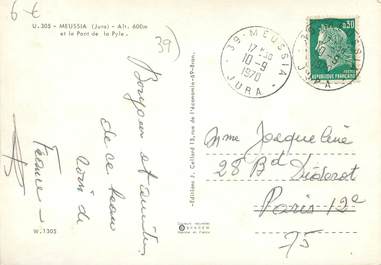 6 €
39
U. 305 - MEUSSIA (Jura) - Alt. 600m
et le Pont de la Pyle.
Bonjour et amitiés
de ce beau
coin de
France -
W. 1305
Editions J. Cellard 13, rue de l'économie-69-Bron.
39 - MEUSSIA
10-9
1970
JURA
0,30
POSTES
REPUBLIQUE FRANÇAISE
Mme Jacqueline
28 Bd Diderot
Paris 12e
75